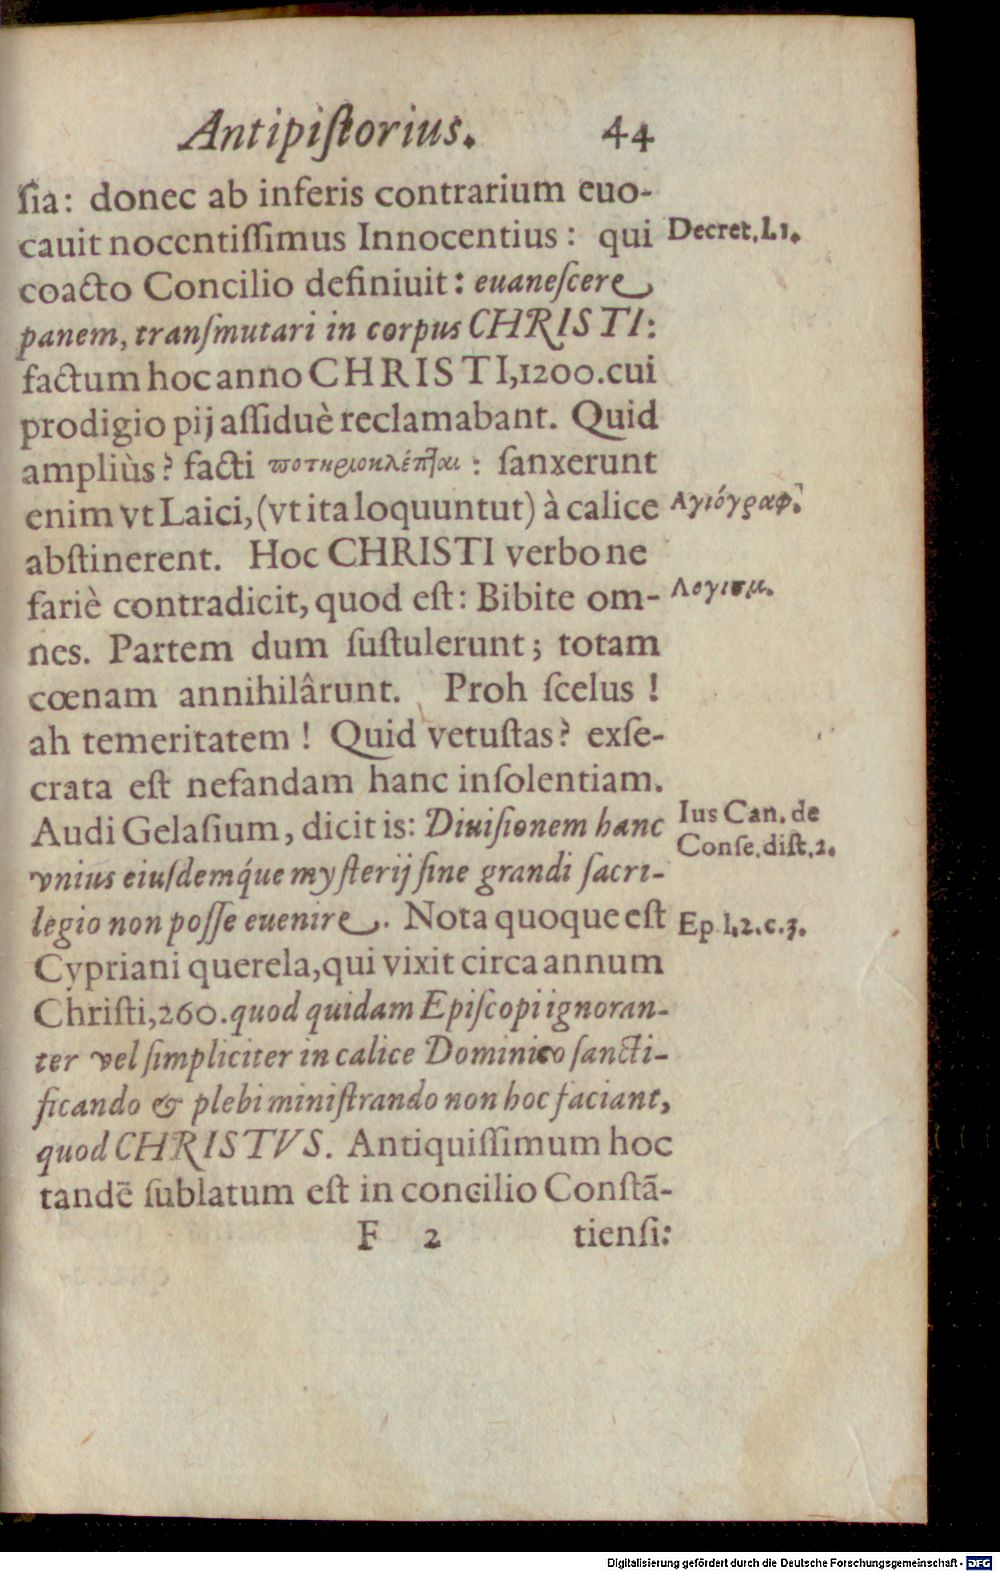 Antipiſtorius. 44
ſia: donec ab inferis contrarium euo-
cauit nocentiſſimus Innocentius: qui
Decret. l. 1.
coacto Concilio definiuit: euaneſcere
panem, tranſmutari in corpus CHRISTI:
factum hoc anno CHRISTI, 1200. cui
prodigio pij aſſiduè reclamabant. Quid
ampliùs? facti ποτηριοκλέπται: ſanxerunt
enim vt Laici, (vt ita loquuntut) à calice
Αγιόγραφ.
abſtinerent. Hoc CHRISTI verbo ne
fariè contradicit, quod eſt: Bibite om-
Λογισμ.
nes. Partem dum ſuſtulerunt; totam
cœnam annihilârunt. Proh ſcelus!
ah temeritatem! Quid vetuſtas? exſe-
crata eſt nefandam hanc inſolentiam.
Audi Gelaſium, dicit is: Diuiſionem hanc
Ius Can. de
Conſe. diſt. 2.
vnius eiuſdemq́ue myſterij ſine grandi ſacri-
legio non poſſe euenire. Nota quoque eſt
Ep. l. 2. c. 3.
Cypriani querela, qui vixit circa annum
Chriſti, 260. quod quidam Epiſcopi ignoran-
ter vel ſimpliciter in calice Dominico ſancti-
ficando & plebi miniſtrando non hoc faciant,
quod CHRISTVS. Antiquiſſimum hoc
tandē ſublatum eſt in concilio Conſtā-
F 2 tienſi:
Digitalisierung gefördert durch die Deutsche Forschungsgemeinschaft - DFG